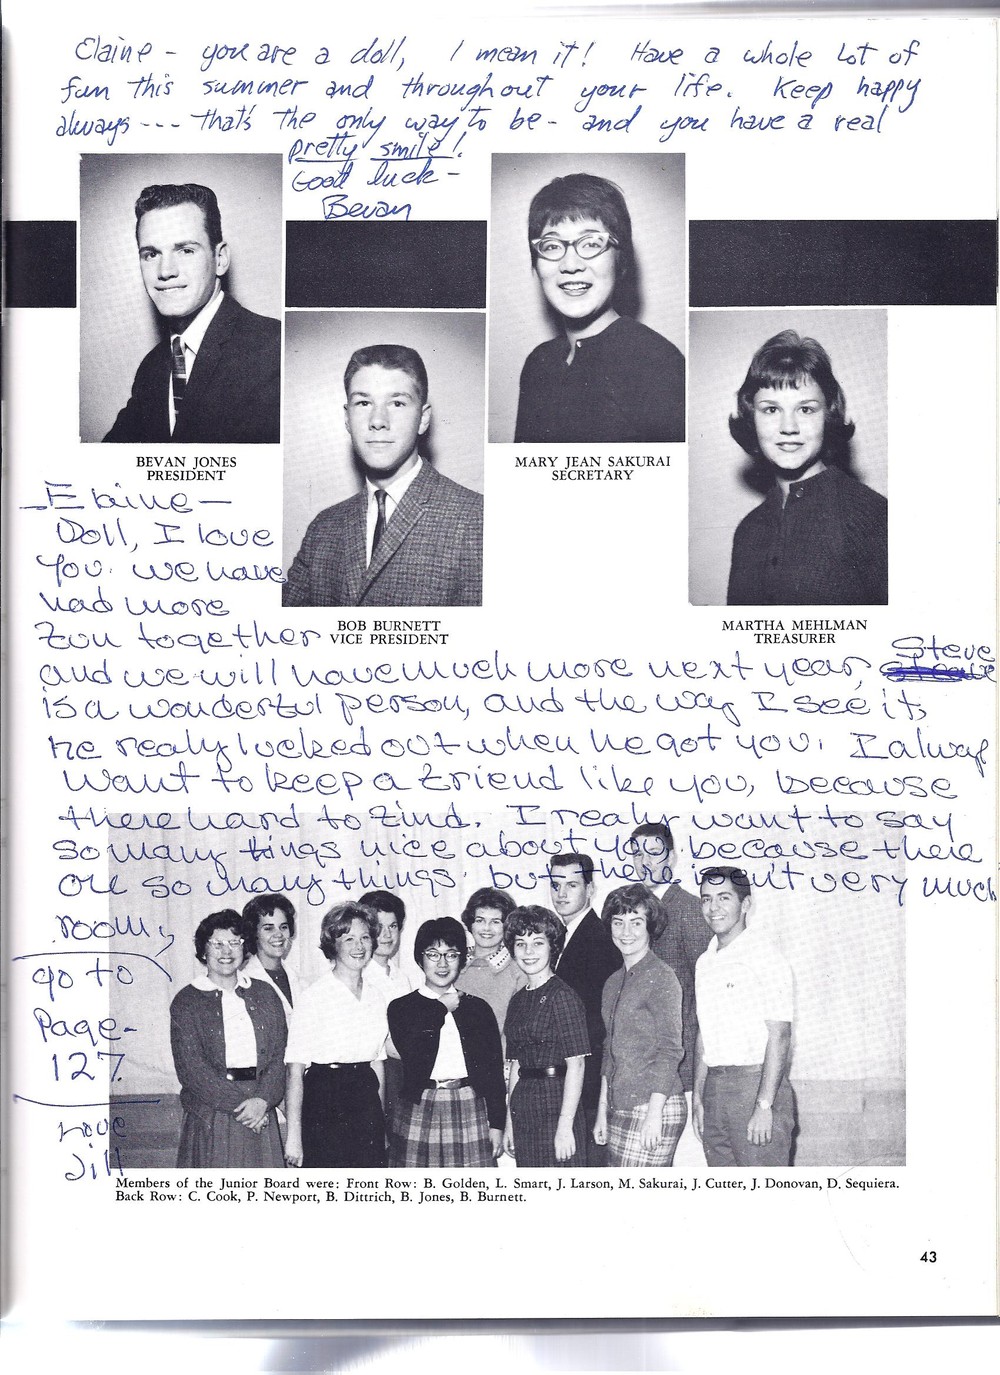 Elaine - you are a doll, I mean it! Have a whole lot of
fun this summer and throughout your life. Keep happy
always --- that's the only way to be - and you have a real
pretty smile!
Good luck -
Bevan
BEVAN JONES
PRESIDENT
MARY JEAN SAKURAI
SECRETARY
BOB BURNETT
VICE PRESIDENT
MARTHA MEHLMAN
TREASURER
Elaine -
Doll, I love
you. we have
had more
fun together
and we will have much more next year, Steve
is a wonderful person, and the way I see it,
he realy lucked out when he got you. I alway
want to keep a friend like you, because
there hard to find. I realy want to say
so many tings nice about you, because there
are so many things. but there isent very much
room,
go to
Page-
127.
Love
Jill
Members of the Junior Board were: Front Row: B. Golden, L. Smart, J. Larson, M. Sakurai, J. Cutter, J. Donovan, D. Sequiera.
Back Row: C. Cook, P. Newport, B. Dittrich, B. Jones, B. Burnett.
43